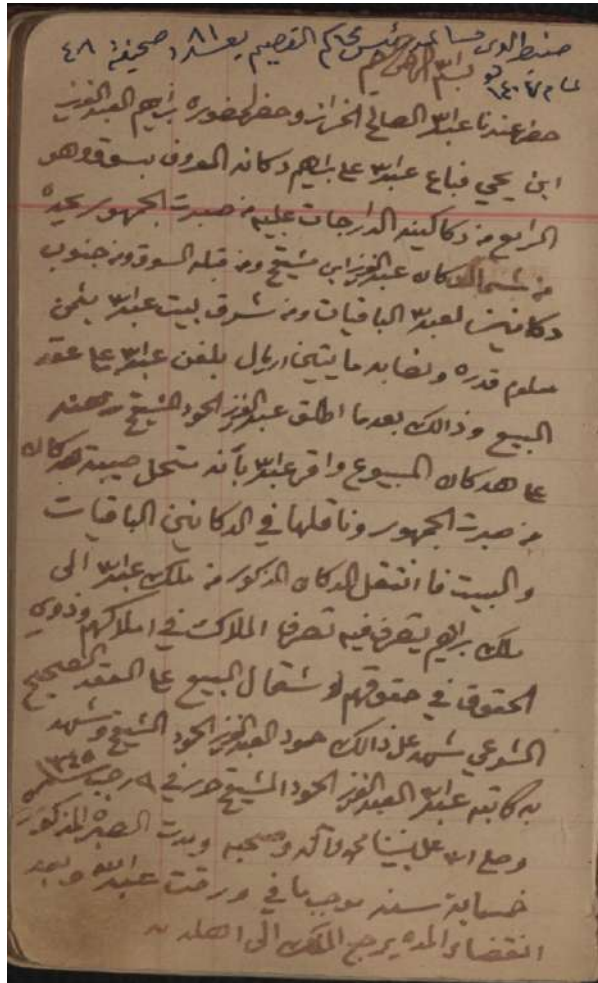 ضبط لدى مساعد رئيس محاكم القصيم بعدد ٨١ صحيفة ٤٨
عام ١٤٠٧
بسم الله الرحمن الرحيم
حضر عندنا عبدالله الصالح الخزاز وحضر لحضوره براهيم العبد العزيز
ابن يحي فباع عبدالله على براهيم دكانه المعروف بسوق وهو
الرابع من دكاكينه الدارجات عليه من صبرت الجمهور يحده
من شمال دكان عبدالعزيز ابن مشيقح ومن قبله السوق ومن جنوب
دكانين لعبدالله الباقيات ومن شرق بيت عبدالله بثمن
معلوم قدره ونصابه مايتين اريال بلغن عبدالله على عقد
البيع وذالك بعدما اطلق عبدالعزيز الحمود المشيقح رهنه
على هدكان المبيوع واقر عبدالله بأنه متحمل صيبة هدكان
من صبرت الجمهور وناقلها في الدكانين الباقيات
والبيت فا انتقل الدكان المذكور من ملك عبدالله الى
ملك براهيم يتصرف فيه تصرف الملاك في املاكهم وذوي
الحقوق في حقوقهم لاشتمال البيع على العقد الصحيح
الشرعي شهد على ذالك حمود العبدالعزيز الحمود المشيقح وشهد
به كاتبه عبدالله العبدالعزيز الحمود المشيقح حرر في ٩ رجب سنة ١٣٤٥
وصلى الله على نبينا محمد وآله وصحبه ومدت الصبره المذكوره
خمسماية سنه موجب ما في ورقت عبدالله وبعد
انقضاء المده يرجع الملك الى اهله